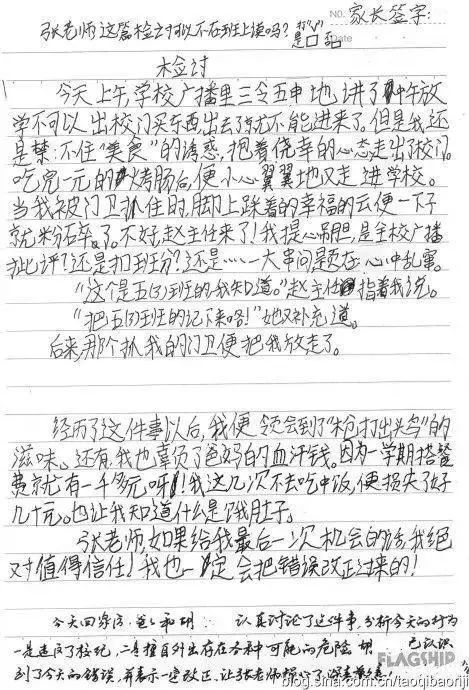 NO.
家长签字：
张老师这篇检讨可以不在班上读吗？打"√"
是□ 否□
Date
检讨
今天上午,学校广播里三令五申地讲了中午放
学不可以出校门买东西出去就不能进来了。但是我还
是禁不住"美食"的诱惑,抱着侥幸的心态走出了校门。
吃完一元的烤肠后,便小心翼翼地又走进学校。
当我被门卫抓住的时,脚上踩着的幸福的云便一下子
就粉碎了。不好,赵主任来了!我提心吊胆,是全校广播
批评?还是扣班分?还是……一大串问题在心中乱窜。
"这个是五(3)班的,我知道。"赵主任指着我说。
"把五(3)班的记下来咯!"她又补充道。
后来,那个抓我的门卫便把我放走了。
经历了这件事以后,我便领会到了"枪打出头鸟"的
滋味。还有,我也辜负了爸妈的血汗钱。因为一学期搭餐
费就有一千多元呀!我这几次不去吃中饭,便损失了好
几十元。也让我知道什么是饿肚子。
张老师,如果给我最后一次机会的话,我绝
对值得信任!我也一定会把错误改正过来的!
今天回家后,爸爸和 认真讨论了这件事,分析今天的行为
一是违反了校纪,二是擅自外出存在各种可能的危险 已认识
到了今天的错误,并表示一定改正。让张老师操心了,
FLAGSHIP
blog.sina.com.cn/taoqibaoriji